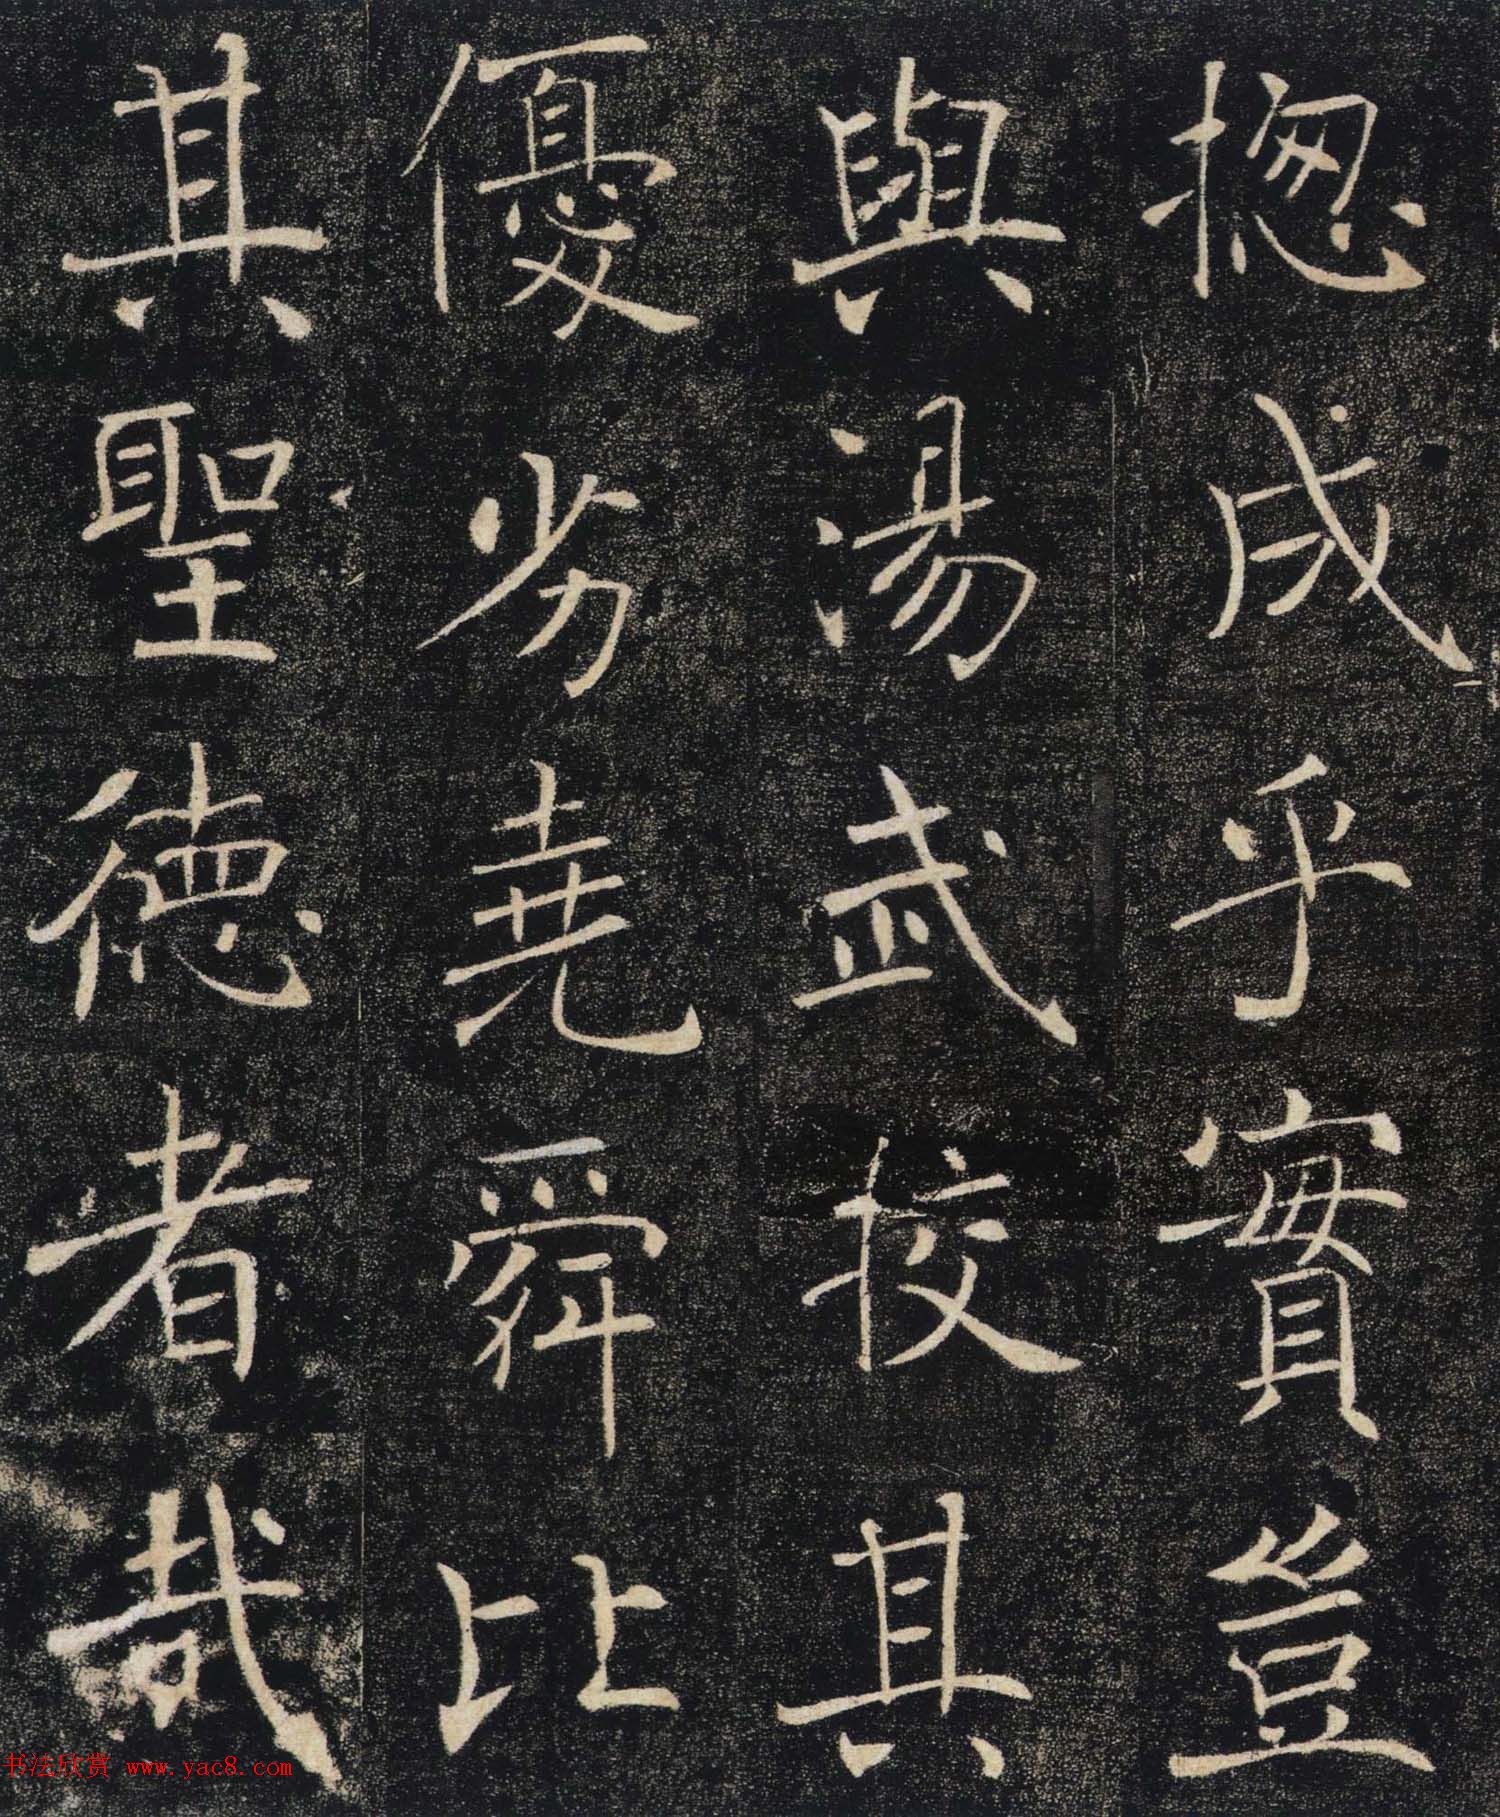 揔成乎實豈
與湯武挍其
優劣堯舜比
其聖德者哉
书法欣赏 www.yac8.com